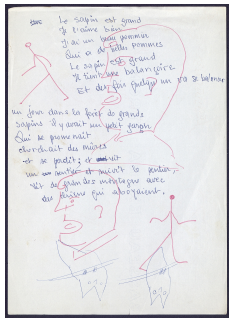 Le sapin est grand
Je l'aime bien
J'ai un beau pommier
Qui a de belles pommes
Le sapin est grand
Je tient une balançoire
Et des fois quelqu'un va se balancer
un jour dans la forêt de grands
sapins il y avait un petit garçon
Qui se promenait
cherchait des mûres
et se perdit, et vit
un sentier et suivit le sentier,
Vit de grandes montagnes avec
des qui aboyaient.